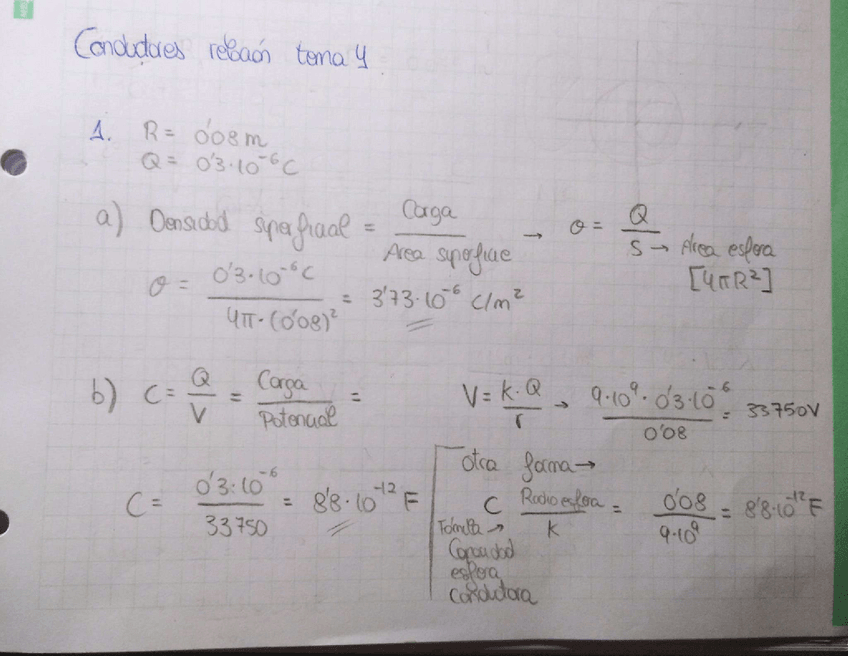 Conductores relación tema 4
1. R = 0'08 m
Q = 0'3·10⁻⁶ C
a) Densidad superficial = Carga / Area superficie → σ = Q / S → Área esfera [4πR²]
σ = 0'3·10⁻⁶ C / 4π·(0'08)² = 3'73·10⁻⁶ C/m²
b) C = Q / V = Carga / Potencial =
V = k·Q / r → 9·10⁹·0'3·10⁻⁶ / 0'08 = 33750V
C = 0'3·10⁻⁶ / 33750 = 8'8·10⁻¹² F
otra forma →
C Radio esfera / k = 0'08 / 9·10⁹ = 8'8·10⁻¹² F
Fórmula →
Capacidad
esfera
conductora